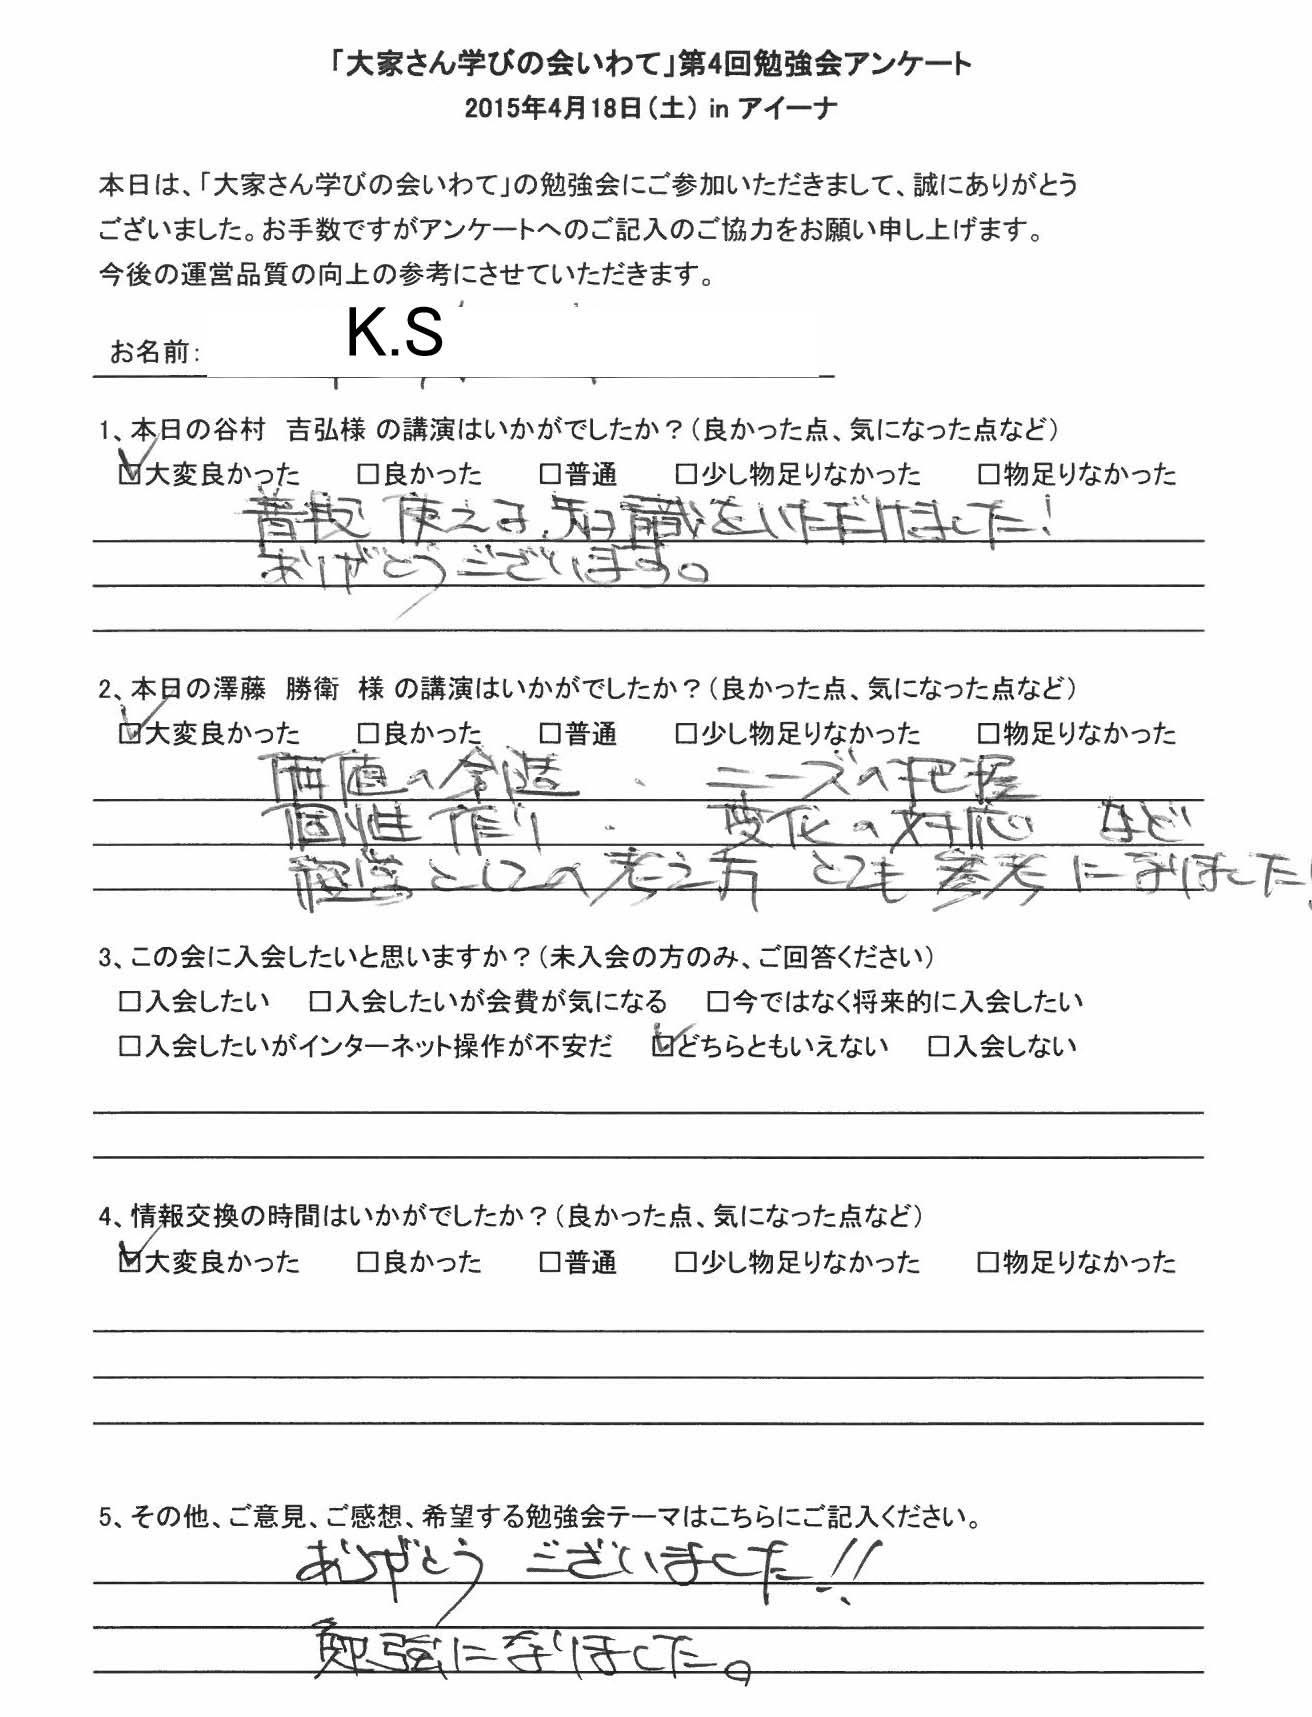 「大家さん学びの会いわて」第4回勉強会アンケート
2015年4月18日（土） in アイーナ
本日は、「大家さん学びの会いわて」の勉強会にご参加いただきまして、誠にありがとう
ございました。お手数ですがアンケートへのご記入のご協力をお願い申し上げます。
今後の運営品質の向上の参考にさせていただきます。
お名前： K.S
1、本日の谷村　吉弘様 の講演はいかがでしたか？（良かった点、気になった点など）
☑大変良かった　□良かった　□普通　□少し物足りなかった　□物足りなかった
普段 使える 知識をいただけました！
ありがとうございます。
2、本日の澤藤　勝衛　様 の講演はいかがでしたか？（良かった点、気になった点など）
☑大変良かった　□良かった　□普通　□少し物足りなかった　□物足りなかった
価値の創造 、 ニーズの把握
個性作り 、 変化の対応 など
経営としての考え方 とても 参考になりました！
3、この会に入会したいと思いますか？（未入会の方のみ、ご回答ください）
□入会したい　□入会したいが会費が気になる　□今ではなく将来的に入会したい
□入会したいがインターネット操作が不安だ　☑どちらともいえない　□入会しない
4、情報交換の時間はいかがでしたか？（良かった点、気になった点など）
☑大変良かった　□良かった　□普通　□少し物足りなかった　□物足りなかった
5、その他、ご意見、ご感想、希望する勉強会テーマはこちらにご記入ください。
ありがとう ございました!!
勉強になりました。